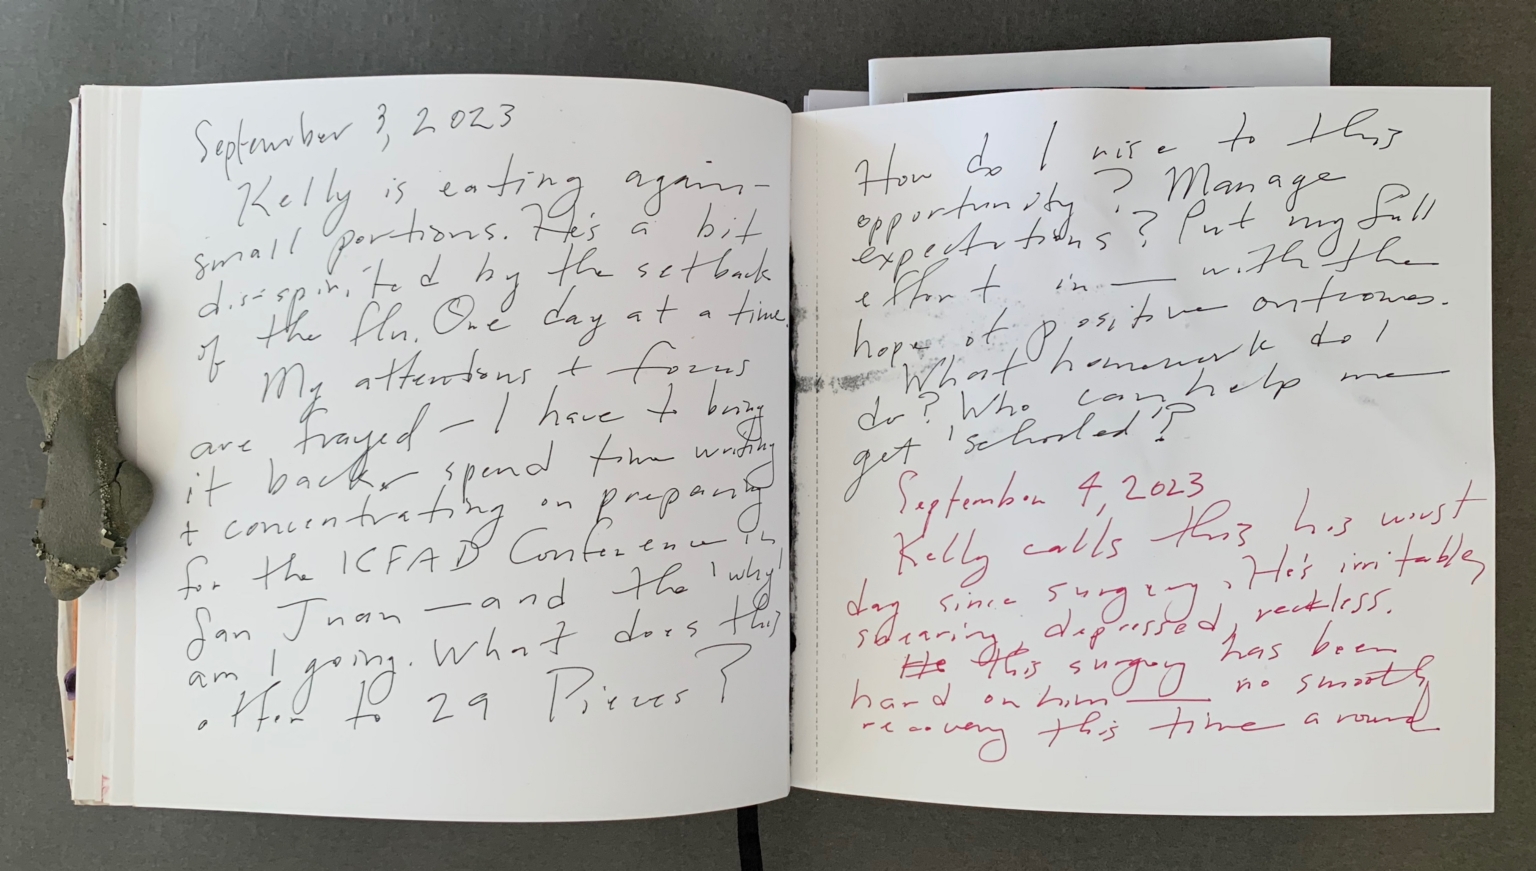 September 3, 2023
Kelly is eating again —
small portions. He's a bit
disspirited by the setback
of the flu. One day at a time.
My attentions + focus
are frayed — I have to bring
it back + spend time writing
+ concentrating on preparing
for the ICFAD Conference in
San Juan — and the 'why'
am I going. What does this
offer to 29 Pieces?
How do I rise to this
opportunity? Manage
expectations? Put my full
effort in — with the
hope of positive outcomes.
What homework do I
do? Who can help me
get 'schooled'?
September 4, 2023
Kelly calls this his worst
day since surgery. He's irritable,
swearing, depressed, reckless.
He this surgery has been
hard on him — no smooth
recovery this time around